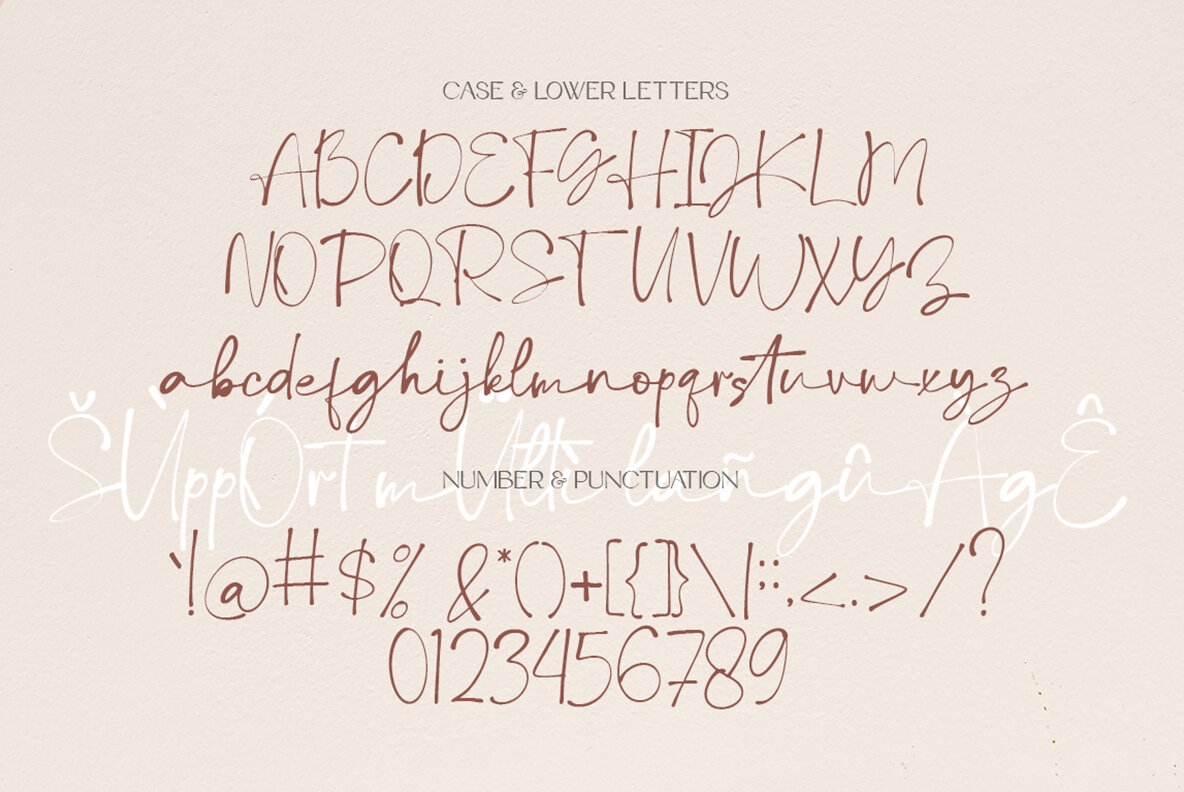 CASE & LOWER LETTERS
ABCDEFGHIJKLM
NOPQRSTUVWXYZ
abcdefghijklmnopqrstuvwxyz
ŠÙppÓrt mÜltì luñgû ÀgÊ
NUMBER & PUNCTUATION
`!@#$%&*()+[{]}\|:;,<.>/?
0123456789